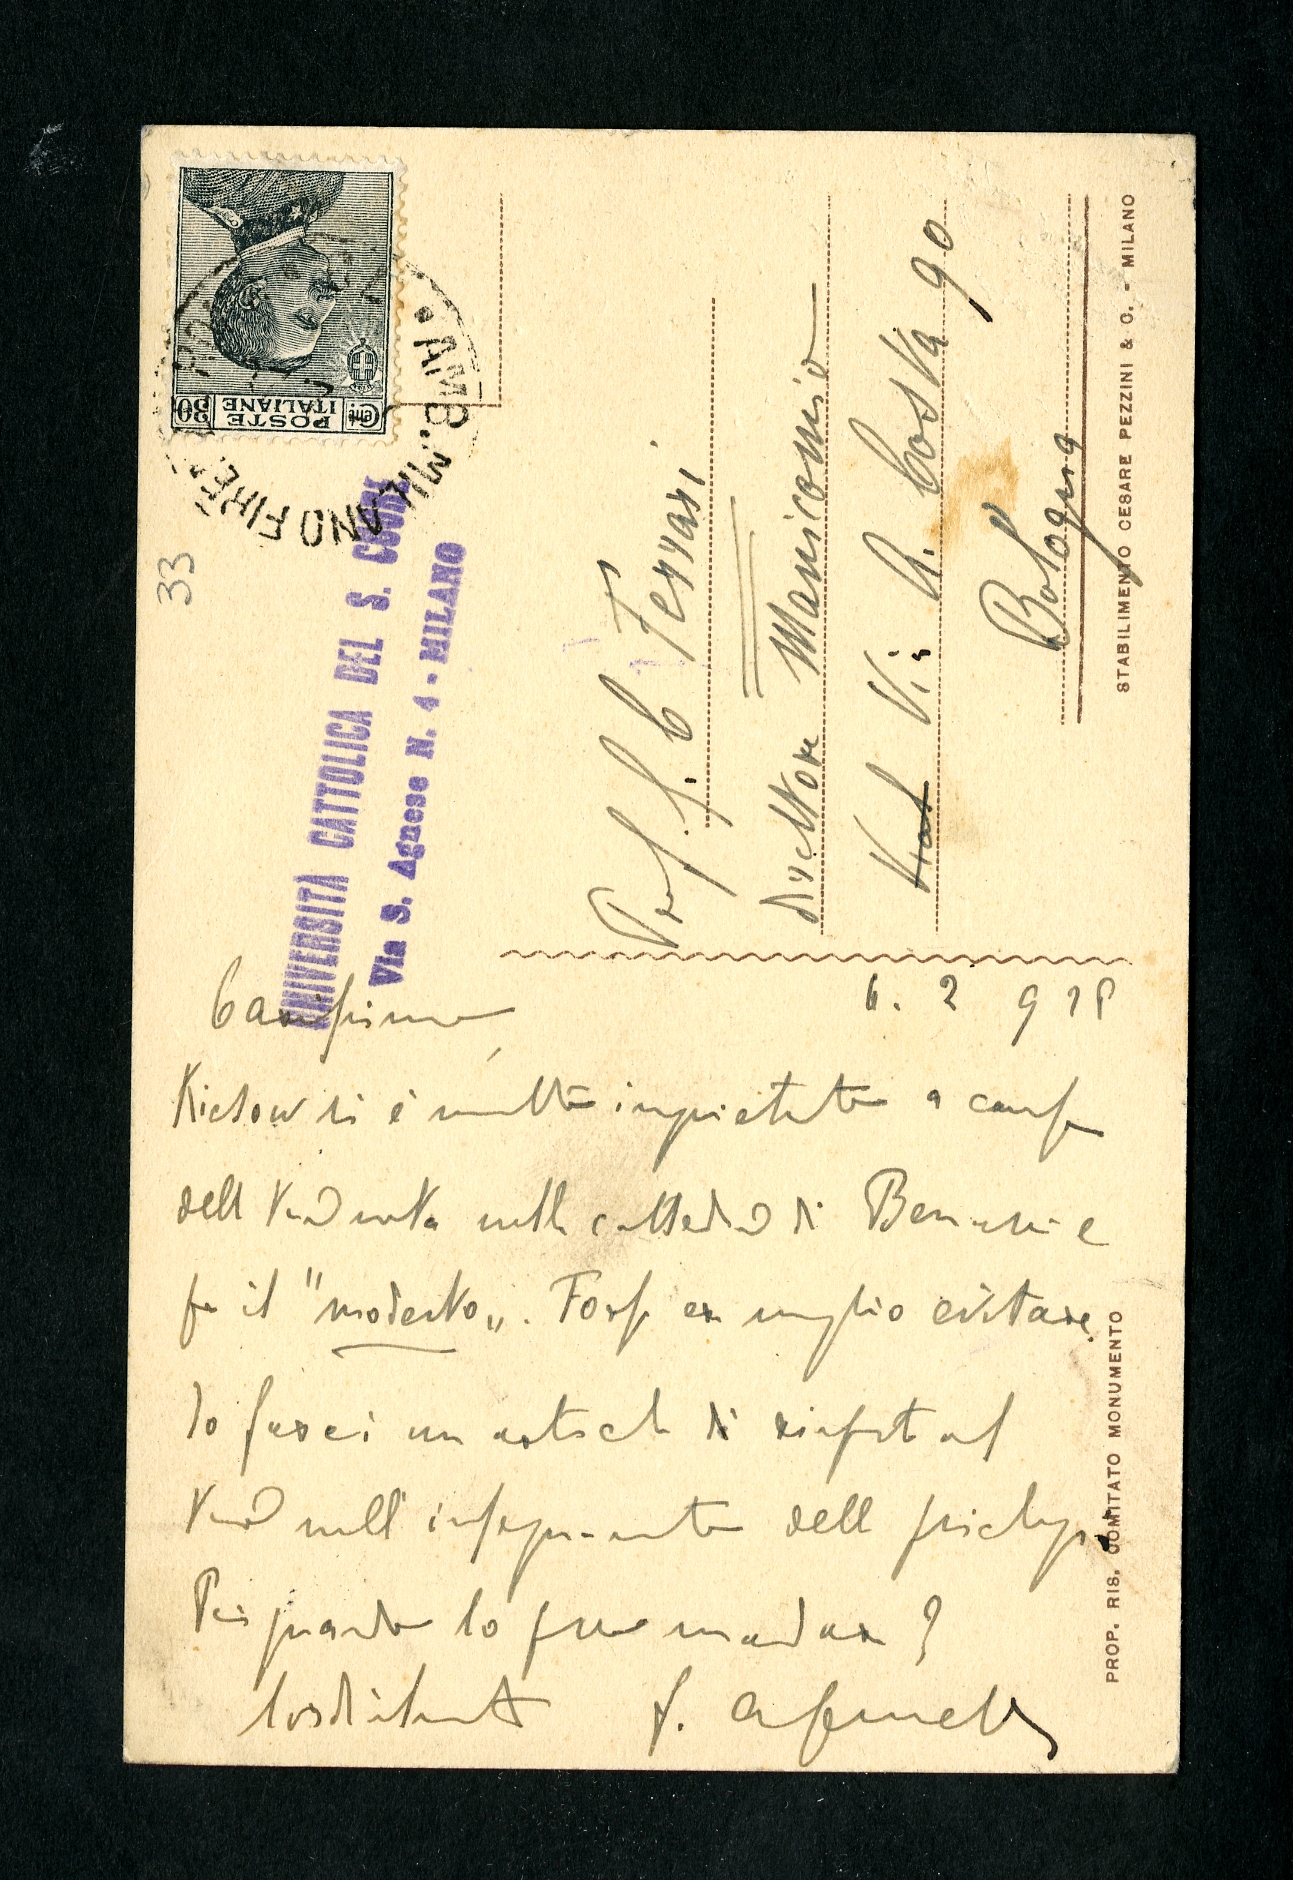 Cent. 30
POSTE
ITALIANE
AMB. MILANO FIRE
33
UNIVERSITÀ CATTOLICA DEL S. CUORE
Via S. Agnese N. 4 - MILANO
Prof. G. C. Ferrari
direttore Manicomio
Via A. Costa 90
Bologna
STABILIMENTO CESARE PEZZINI & C. - MILANO
PROP. RIS. COMITATO MONUMENTO
6. 2 928
Carissimo
Kiesow si è molto inquietato a causa
della sulla cattedra di Benussi e
fa il "modesto„. Forse era meglio evitare.
Io farei un articolo di
nell'insegnamento della psicologia.
Per quando lo mandare?
Cordialmente f. A. Gemelli